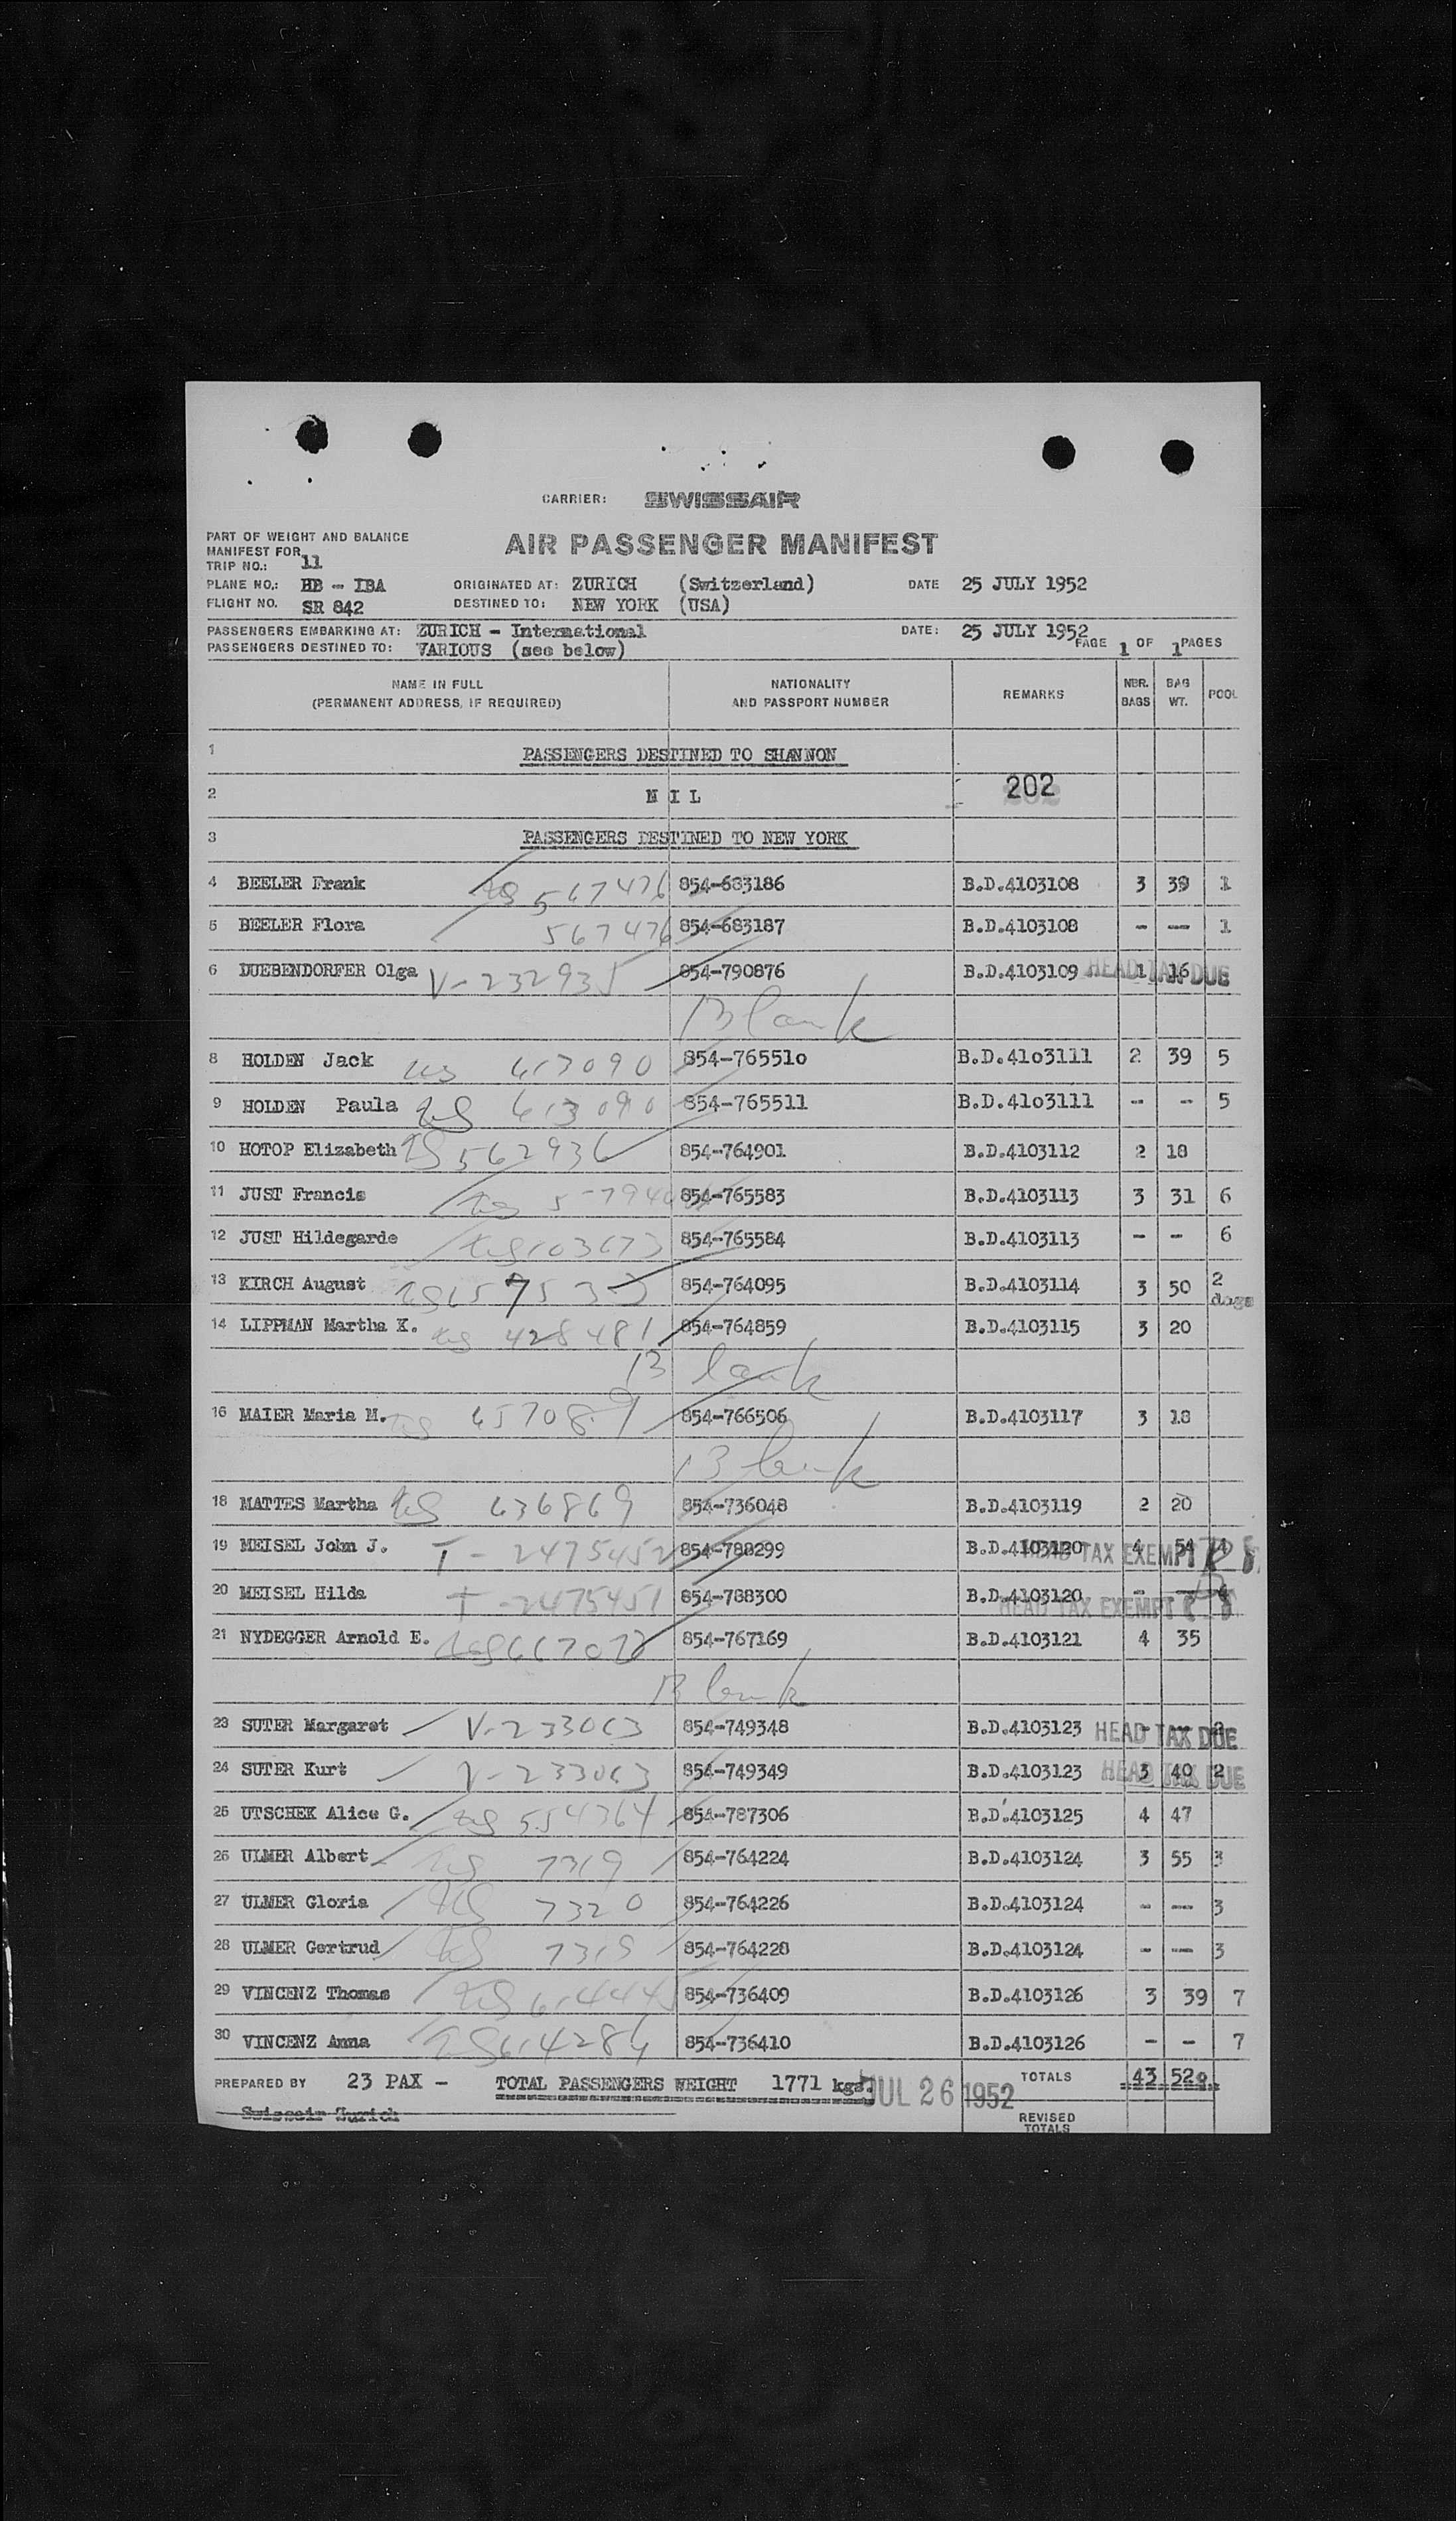 CARRIER: SWISSAIR
PART OF WEIGHT AND BALANCE
MANIFEST FOR
AIR PASSENGER MANIFEST
TRIP NO.: 11
PLANE NO.: HB - IBA ORIGINATED AT: ZURICH (Switzerland) DATE 25 JULY 1952
FLIGHT NO. SR 842 DESTINED TO: NEW YORK (USA)
PASSENGERS EMBARKING AT: ZURICH - International DATE: 25 JULY 1952
PASSENGERS DESTINED TO: VARIOUS (see below) PAGE 1 OF 1 PAGES
NAME IN FULL NATIONALITY REMARKS NBR. BAG POOL
(PERMANENT ADDRESS, IF REQUIRED) AND PASSPORT NUMBER BAGS WT.
1 PASSENGERS DESTINED TO SHANNON
2 N I L 202
3 PASSENGERS DESTINED TO NEW YORK
4 BEELER Frank US 567476 854-683186 B.D.4103108 3 39 1
5 BEELER Flora 567476 854-683187 B.D.4103108 - -- 1
6 DUEBENDORFER Olga V-232935 854-790876 B.D.4103109 1 16 HEAD TAX DUE
Blank
8 HOLDEN Jack US 613090 854-765510 B.D.4103111 2 39 5
9 HOLDEN Paula US 613090 854-765511 B.D.4103111 - - 5
10 HOTOP Elizabeth US 562936 854-764901 B.D.4103112 2 18
11 JUST Francis US 854-765583 B.D.4103113 3 31 6
12 JUST Hildegarde US 103673 854-765584 B.D.4103113 - - 6
13 KIRCH August US 854-764095 B.D.4103114 3 50 2 dogs
14 LIPPMAN Martha K. US 428481 854-764859 B.D.4103115 3 20
Blank
16 MAIER Maria M. US 854-766506 B.D.4103117 3 18
Blank
18 MATTES Martha US 636869 854-736048 B.D.4103119 2 20
19 MEISEL John J. T-2475452 854-788299 B.D.4103120 4 54 4 HEAD TAX EXEMPT
20 MEISEL Hilda T-2475451 854-788300 B.D.4103120 - -- 4 HEAD TAX EXEMPT
21 NYDEGGER Arnold E. US 854-767169 B.D.4103121 4 35
Blank
23 SUTER Margaret V-233063 854-749348 B.D.4103123 - -- 2 HEAD TAX DUE
24 SUTER Kurt V-233063 854-749349 B.D.4103123 3 40 2 HEAD TAX DUE
25 UTSCHEK Alice G. US 554364 854-787306 B.D.4103125 4 47
26 ULMER Albert US 7319 854-764224 B.D.4103124 3 55 3
27 ULMER Gloria US 7320 854-764226 B.D.4103124 - -- 3
28 ULMER Gertrud US 7319 854-764228 B.D.4103124 - -- 3
29 VINCENZ Thomas US 854-736409 B.D.4103126 3 39 7
30 VINCENZ Anna US 614284 854-736410 B.D.4103126 - - 7
PREPARED BY 23 PAX - TOTAL PASSENGERS WEIGHT 1771 kgs. JUL 26 1952 TOTALS 43 520
Swissair Zurich
REVISED
TOTALS